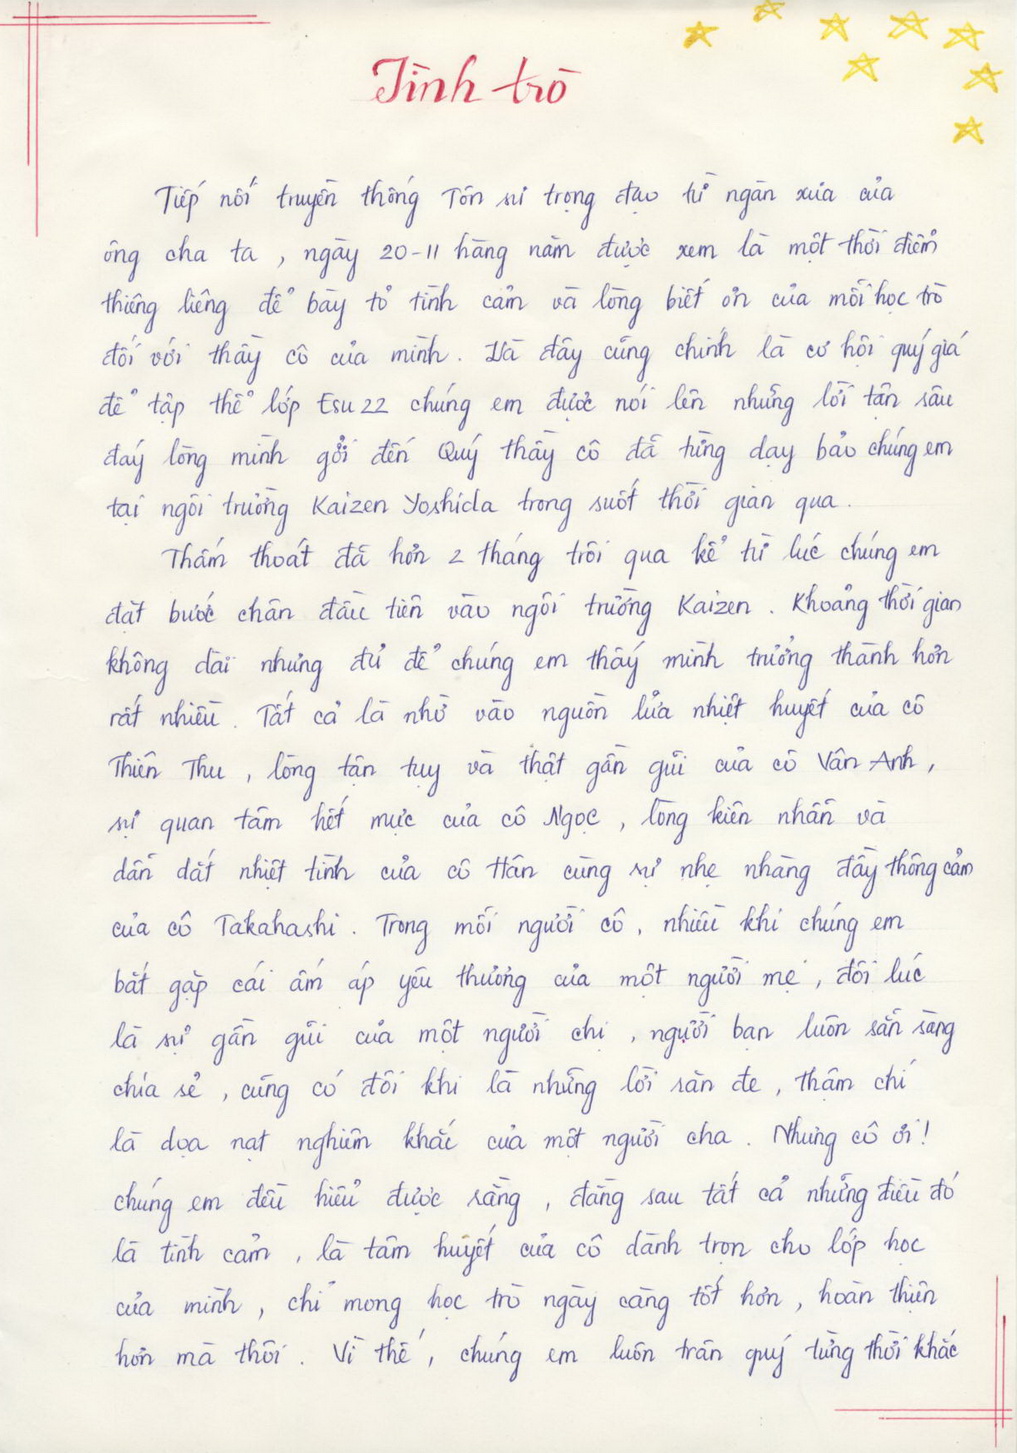 Tình trò
Tiếp nối truyền thống Tôn sư trọng đạo từ ngàn xưa của
ông cha ta , ngày 20-11 hàng năm được xem là một thời điểm
thiêng liêng để bày tỏ tình cảm và lòng biết ơn của mỗi học trò
đối với thầy cô của mình . Và đây cũng chính là cơ hội quý giá
để tập thể lớp Esu 22 chúng em được nói lên những lời tận sâu
đáy lòng mình gởi đến Quý thầy cô đã từng dạy bảo chúng em
tại ngôi trường Kaizen Yoshida trong suốt thời gian qua .
Thấm thoát đã hơn 2 tháng trôi qua kể từ lúc chúng em
đặt bước chân đầu tiên vào ngôi trường Kaizen . Khoảng thời gian
không dài nhưng đủ để chúng em thấy mình trưởng thành hơn
rất nhiều . Tất cả là nhờ vào nguồn lửa nhiệt huyết của cô
Thiên Thu , lòng tận tụy và thật gần gũi của cô Vân Anh ,
sự quan tâm hết mực của cô Ngọc , lòng kiên nhẫn và
dẫn dắt nhiệt tình của cô Hân cùng sự nhẹ nhàng đầy thông cảm
của cô Takahashi . Trong mỗi người cô , nhiều khi chúng em
bắt gặp cái ấm áp yêu thương của một người mẹ , đôi lúc
là sự gần gũi của một người chị , người bạn luôn sẵn sàng
chia sẻ , cũng có đôi khi là những lời răn đe , thậm chí
là dọa nạt nghiêm khắc của một người cha . Nhưng cô ơi !
chúng em đều hiểu được rằng , đằng sau tất cả những điều đó
là tình cảm , là tâm huyết của cô dành trọn cho lớp học
của mình , chỉ mong học trò ngày càng tốt hơn , hoàn thiện
hơn mà thôi . Vì thế , chúng em luôn trân quý từng thời khắc